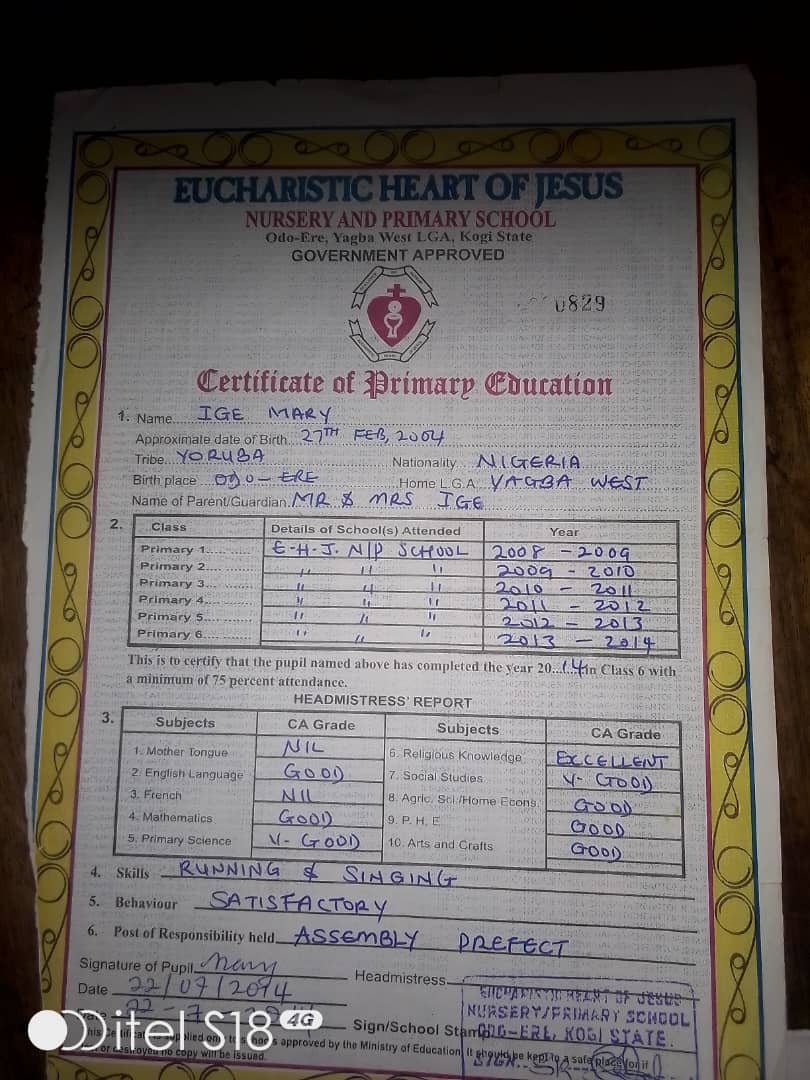 EUCHARISTIC HEART OF JESUS
NURSERY AND PRIMARY SCHOOL
Odo-Ere, Yagba West LGA, Kogi State
GOVERNMENT APPROVED
0829
Certificate of Primary Education
1. Name IGE MARY
Approximate date of Birth 27TH FEB, 2004
Tribe YORUBA Nationality NIGERIA
Birth place ODO-ERE Home L.G.A. YAGBA WEST
Name of Parent/Guardian MR & MRS IGE
2. Class Details of School(s) Attended Year
Primary 1 E-H-J. N/P SCHOOL 2008 - 2009
Primary 2 " " " 2009 - 2010
Primary 3 " " " 2010 - 2011
Primary 4 " " " 2011 - 2012
Primary 5 " " " 2012 - 2013
Primary 6 " " " 2013 - 2014
This is to certify that the pupil named above has completed the year 2014 in Class 6 with
a minimum of 75 percent attendance.
HEADMISTRESS' REPORT
3. Subjects CA Grade Subjects CA Grade
1. Mother Tongue NIL 6. Religious Knowledge EXCELLENT
2. English Language GOOD 7. Social Studies V- GOOD
3. French NIL 8. Agric. Sci./Home Econs. GOOD
4. Mathematics GOOD 9. P. H. E GOOD
5. Primary Science V- GOOD 10. Arts and Crafts GOOD
4. Skills RUNNING & SINGING
5. Behaviour SATISFACTORY
6. Post of Responsibility held ASSEMBLY PREFECT
Signature of Pupil Mary Headmistress
Date 22/07/2014
EUCHARISTIC HEART OF JESUS
NURSERY/PRIMARY SCHOOL
Sign/School Stamp ODO-ERE, KOGI STATE.
approved by the Ministry of Education. It should be kept in a safe place for if
no copy will be issued.
SIGN
itel S18 4G